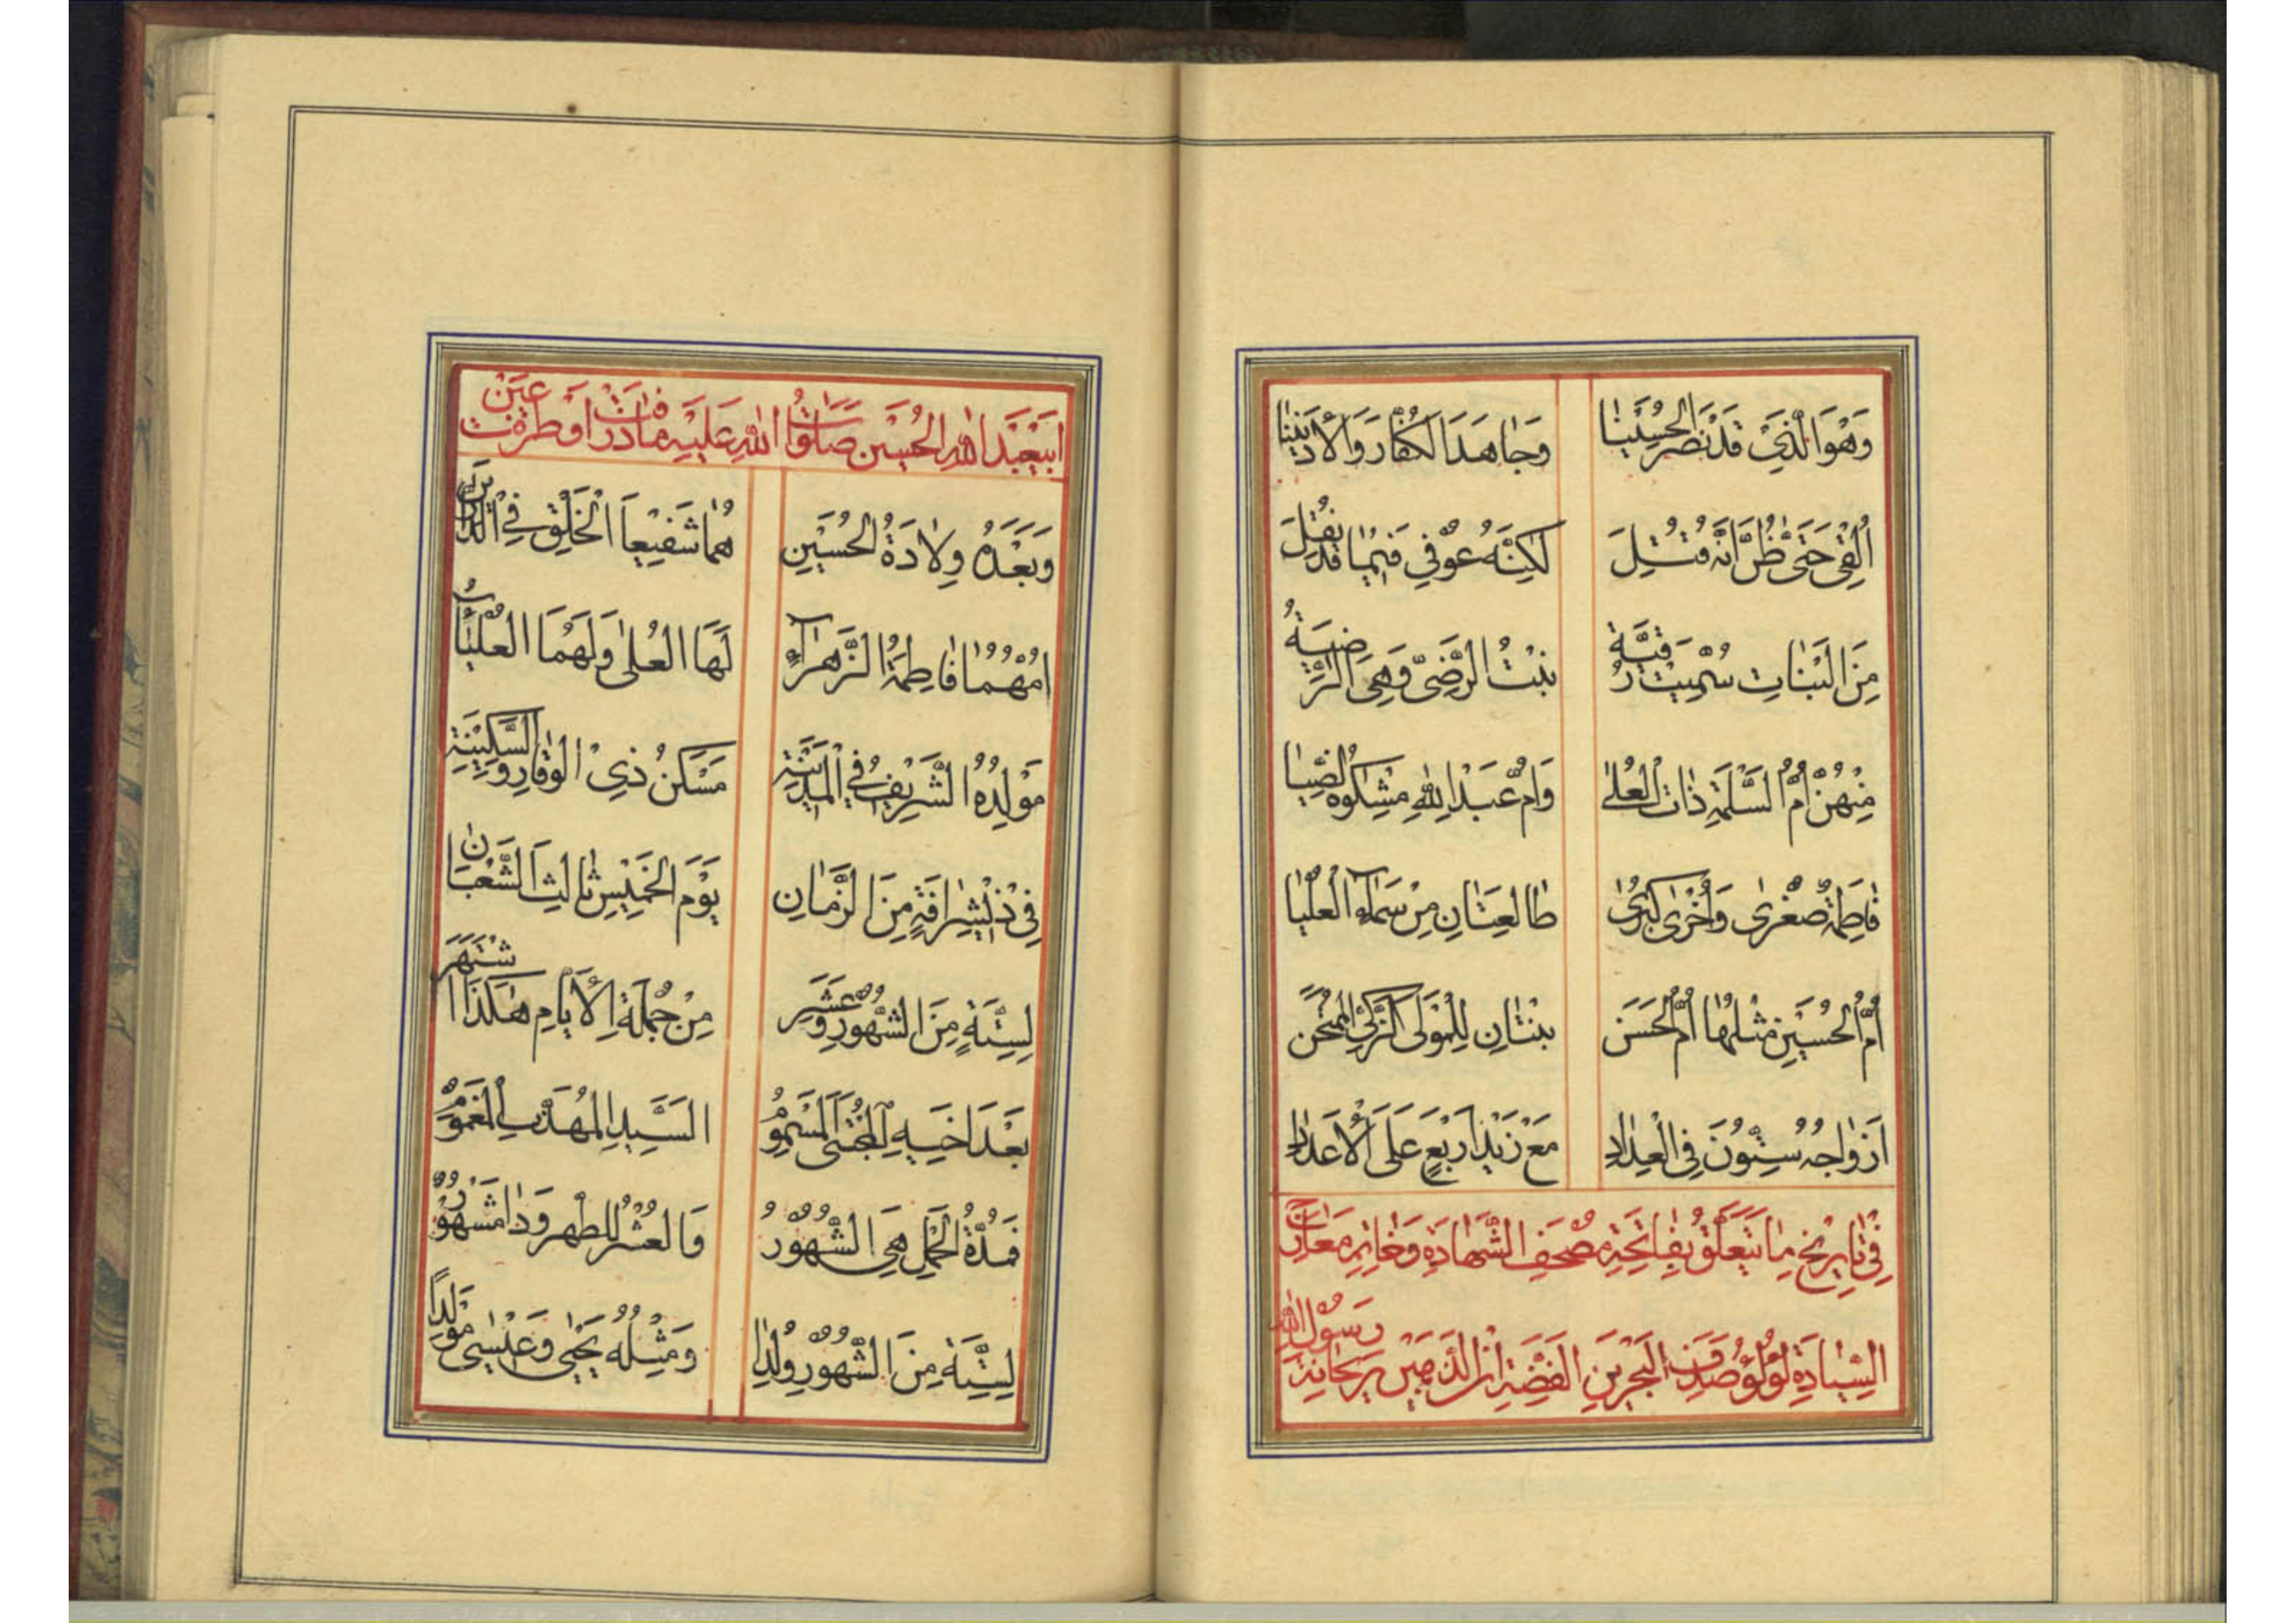 وَهُوَ الَّذِي قَدْ نَصَرَ الْحُسَيْنَا وَجَاهَدَ الْكُفَّارَ وَالْأَدْيَنَا
اُلْقِيَ حَتَّى ظُنَّ اَنَّهُ قُتِلَ لٰكِنَّهُ عُوفِيَ فِيمَا قَدْ نُقِلَ
مِنَ الْبَنَاتِ سُمِّيَتْ رُقَيَّةُ بِنْتُ الرَّضِيِّ وَهِيَ الرَّضِيَّةُ
مِنْهُنَّ اُمُّ السَّلَمَةِ ذَاتُ الْعُلٰى وَاُمُّ عَبْدِ اللهِ مِشْكٰوةُ الضِّيَا
فَاطِمَةُ صُغْرٰى وَاُخْرٰى كُبْرٰى طَالِعَتَانِ مِنْ سَمَاءِ الْعُلْيَا
اُمُّ الْحُسَيْنِ مِثْلُهَا اُمُّ الْحَسَنِ بِنْتَانِ لِلْمَوْلَى الزَّكِيِّ الْمُمْتَحَنِ
اَزْوَاجُهُ سِتُّونَ فِي الْعِدَادِ مَعْ زَيْدِ اَرْبَعٍ عَلَى الْأَعْدَادِ
فِي تَارِيخِ مَا يَتَعَلَّقُ بِفَاتِحَةِ مُصْحَفِ الشَّهَادَةِ وَخَاتِمِ مَعَارِجِ
السِّيَادَةِ لُؤْلُؤِ صَدَفِ الْبَحْرَيْنِ الْفِضَّةِ ابْنِ الذَّهَبَيْنِ رَيْحَانَةِ رَسُولِ اللهِ
اَبِي عَبْدِ اللهِ الْحُسَيْنِ صَلَوَاتُ اللهِ عَلَيْهِ مَا ذَرَفَتْ اَوْ طَرَفَتْ عَيْنٌ
وَبَعْدَهُ وِلَادَةُ الْحُسَيْنِ هُمَا شَفِيعَا الْخَلْقِ فِي الدَّارَيْنِ
اُمُّهُمَا فَاطِمَةُ الزَّهْرَاءُ لَهَا الْعُلٰى وَلَهُمَا الْعُلْيَاءُ
مَوْلِدُهُ الشَّرِيفُ فِي الْمَدِينَةِ مَسْكَنُ ذِي الْوَقَارِ وَالسَّكِينَةِ
فِي ذِي شِرَافَةٍ مِنَ الزَّمَانِ يَوْمَ الْخَمِيسِ ثَالِثَ الشَّعْبَانِ
لِسِتَّةٍ مِنَ الشُّهُورِ وَعَشَرَ مِنْ جُمْلَةِ الْأَيَّامِ هٰكَذَا اشْتَهَرَ
بَعْدَ اَخِيهِ الْمُجْتَبَى الْمَسْمُومِ السَّيِّدِ الْمُهَذَّبِ الْمَغْمُومِ
فَمُدَّةُ الْحَمْلِ هِيَ الشُّهُورُ وَالْعُشْرُ لِلطُّهْرِ وَذَا مَشْهُورُ
لِسِتَّةٍ مِنَ الشُّهُورِ وُلِدَا وَمِثْلُهُ يَحْيٰى وَعِيسٰى مَوْلِدًا